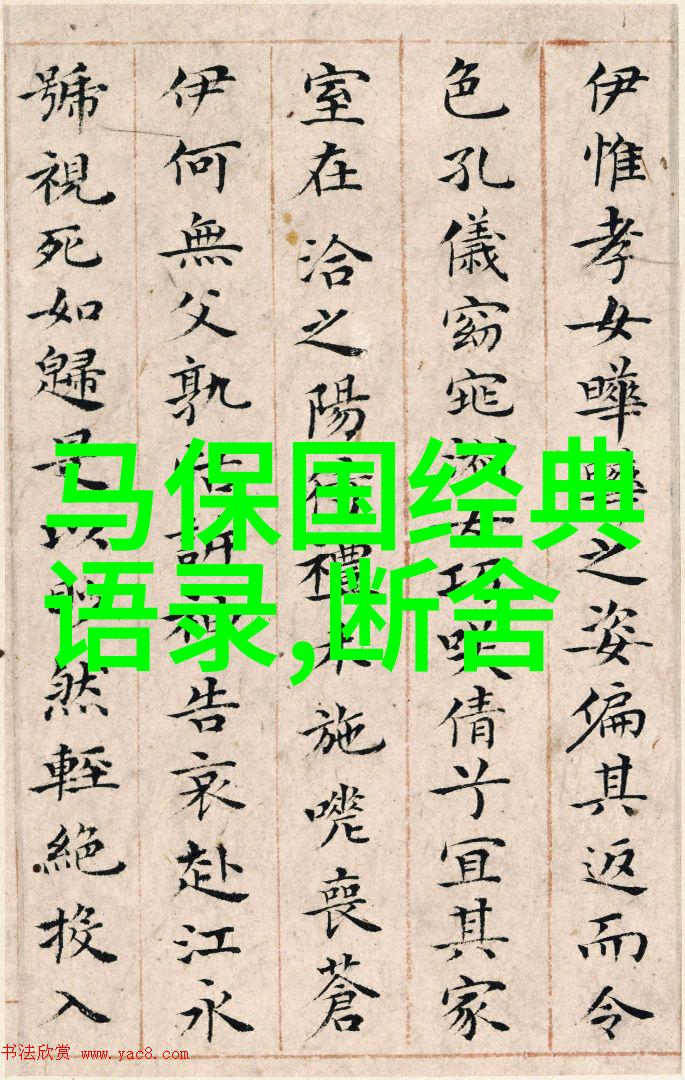 伊惟孝女曄曄之姿偏其返而令
色孔儀窈窕淑女巧咲倩兮宜其家
室在洽之陽待禮未施嗟喪蒼
伊何無父孰怙訴神告哀赴江永
號視死如歸是以眇然輕絕投入
马保国经典
语录,断舍
书法欣赏 www.yac8.com